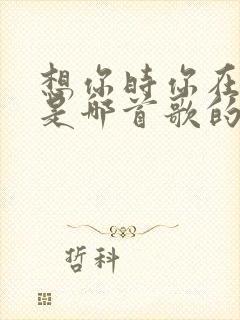 想你时你在
是哪首歌的
哲科